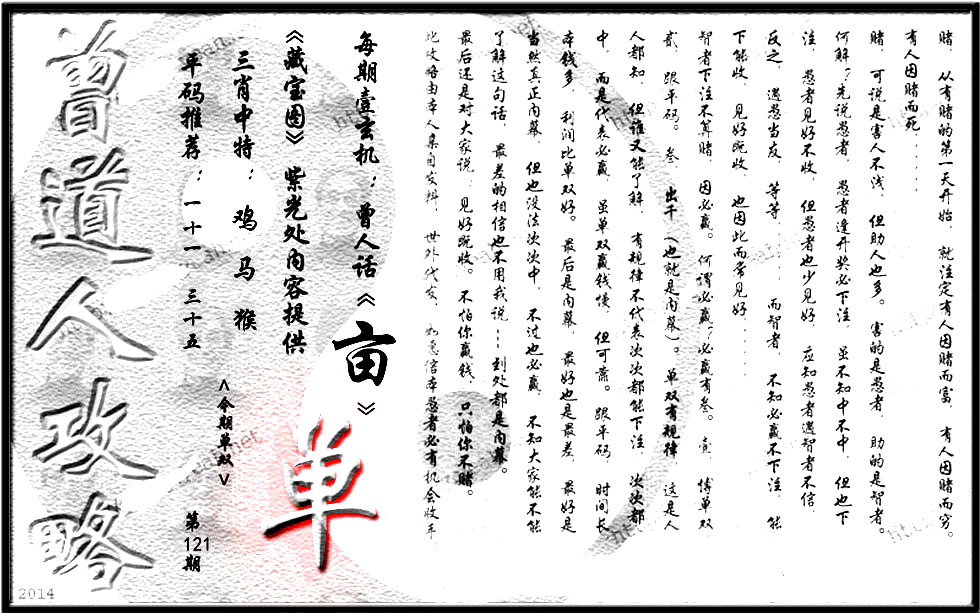 赌，从有赌的第一天开始，就注定有人因赌而富，有人因赌而穷。
有人因赌而死.....
赌，可说是害人不浅，但助人也多。害的是愚者，助的是智者。
何解？先说愚者，愚者逢开奖必下注，虽不知中不中，但也下
注，愚者见好不收，但愚者也少见好，应知愚者遇智者不信，
反之，遇愚当友，等等.......而智者，不知必赢不下注，能
下能收，见好既收，也因此而常见好.......
智者下注不算赌，因必赢。何谓必赢？必赢有叁。壹，博单双
贰，跟平码。叁，出千（也就是内幕）。单双有规律，这是人
人都知，但谁又能了解，有规律不代表次次都能下注，次次都
中，而是代表必赢，虽单双赢钱慢，但可靠。跟平码，时间长
本钱多，利润比单双好。最后是内幕，最好也是最差，最好是
当然真正内幕，但也没法次次中，不过也必赢，不知大家能不能
了解这句话，最差的相信也不用我说...到处都是内幕。
最后还是对大家说，见好既收。不怕你赢钱，只怕你不赌。
此攻略由本人亲自发料，世外代友，如愿信本愚者必有机会收本
每期壹玄机：曾人话《亩》
《藏宝图》紫光处内容提供
单
三肖中特：鸡 马 猴
<今期单双>
平码推荐：一十一 三十五
第121期
曾道人攻略
2014